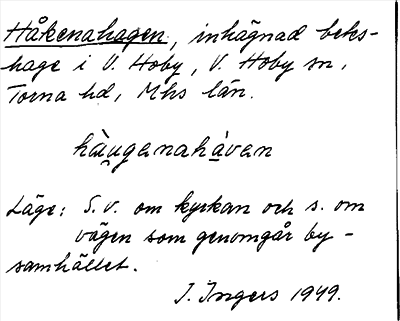 Håkenahagen, inhägnad betes-
hage i V. Hoby, V. Hoby sn,
Torna hd, Mhs län.
hàu̯genahàven
Läge: S.V. om kyrkan och s. om
vägen som genomgår by-
samhället.
I. Ingers 1949.